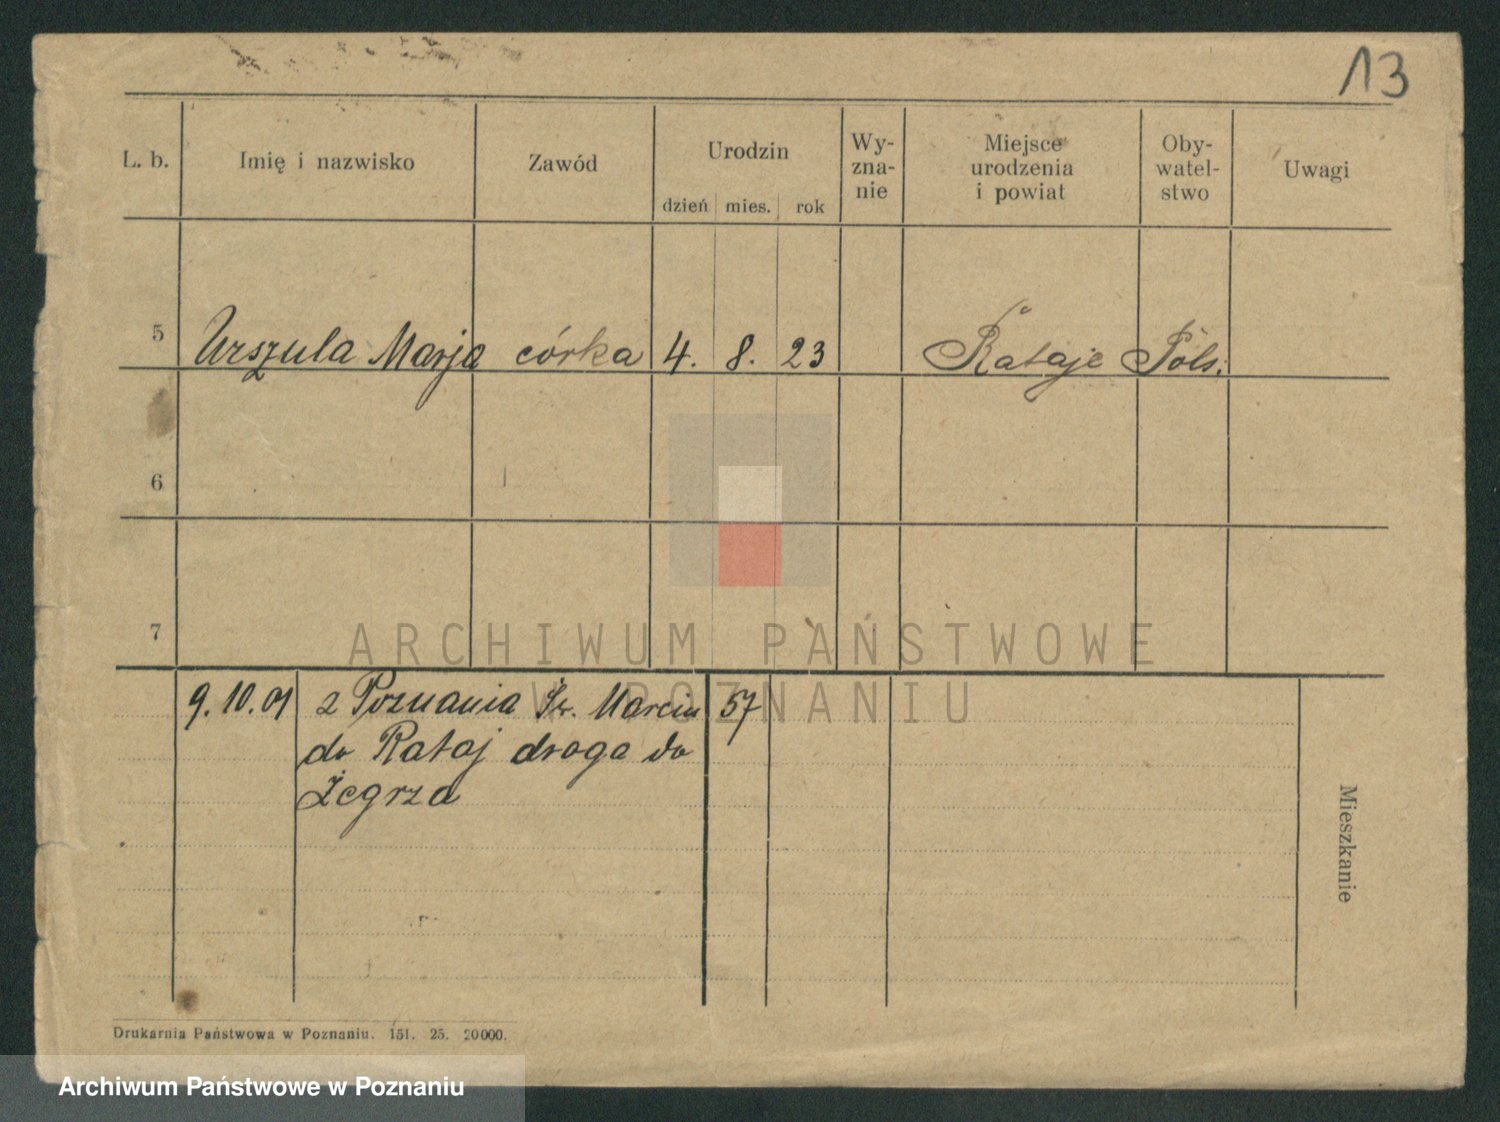 13
L. b. Imię i nazwisko Zawód Urodzin Wy-zna-nie Miejsce urodzenia i powiat Oby-watel-stwo Uwagi
dzień mies. rok
5 Urszula Marja córka 4. 8. 23 Rataje Pols.
6
7
ARCHIWUM PAŃSTWOWE
W POZNANIU
9.10.01 z Poznania Św. Marcin 57
do Rataj droga do
Żegrza
Mieszkanie
Drukarnia Państwowa w Poznaniu. 151. 25. 20000.
Archiwum Państwowe w Poznaniu